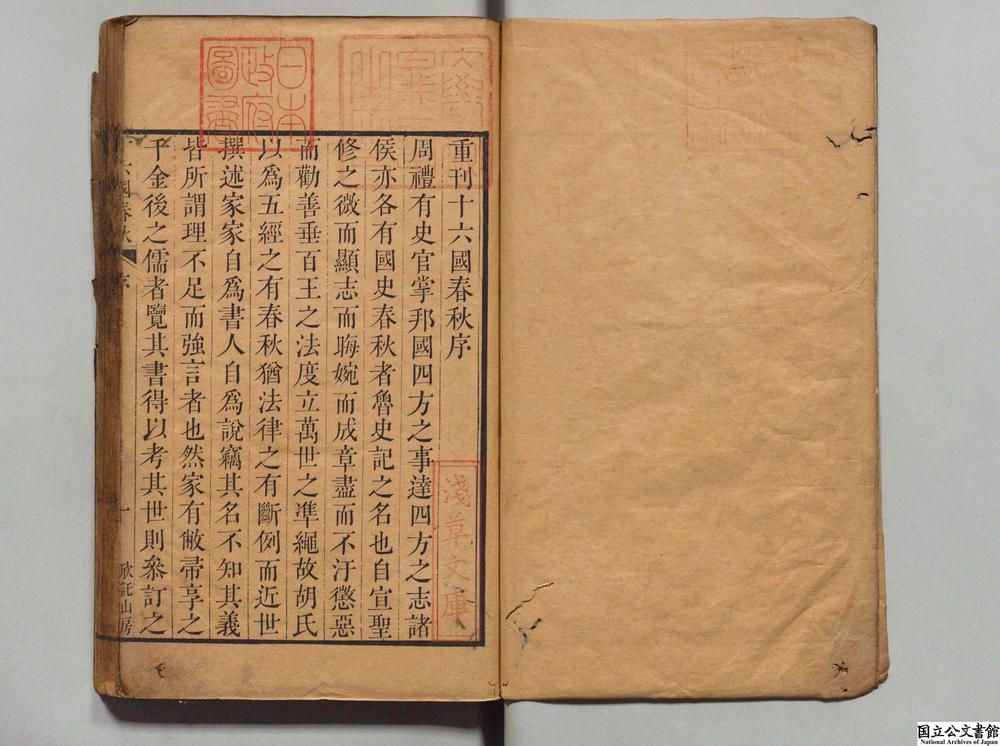 重刊十六國春秋序
周禮有史官掌邦國四方之事達四方之志諸
侯亦各有國史春秋者魯史記之名也自宣聖
修之微而顯志而晦婉而成章盡而不汙懲惡
而勸善垂百王之法度立萬世之準繩故胡氏
以爲五經之有春秋猶法律之有斷例而近世
撰述家家自爲書人自爲說竊其名不知其義
皆所謂理不足而強言者也然家有敝帚享之
千金後之儒者覽其書得以考其世則叅訂之
十六國春秋
序
一
欣託山房
日本政府圖書
淺草文庫
国立公文書館
National Archives of Japan